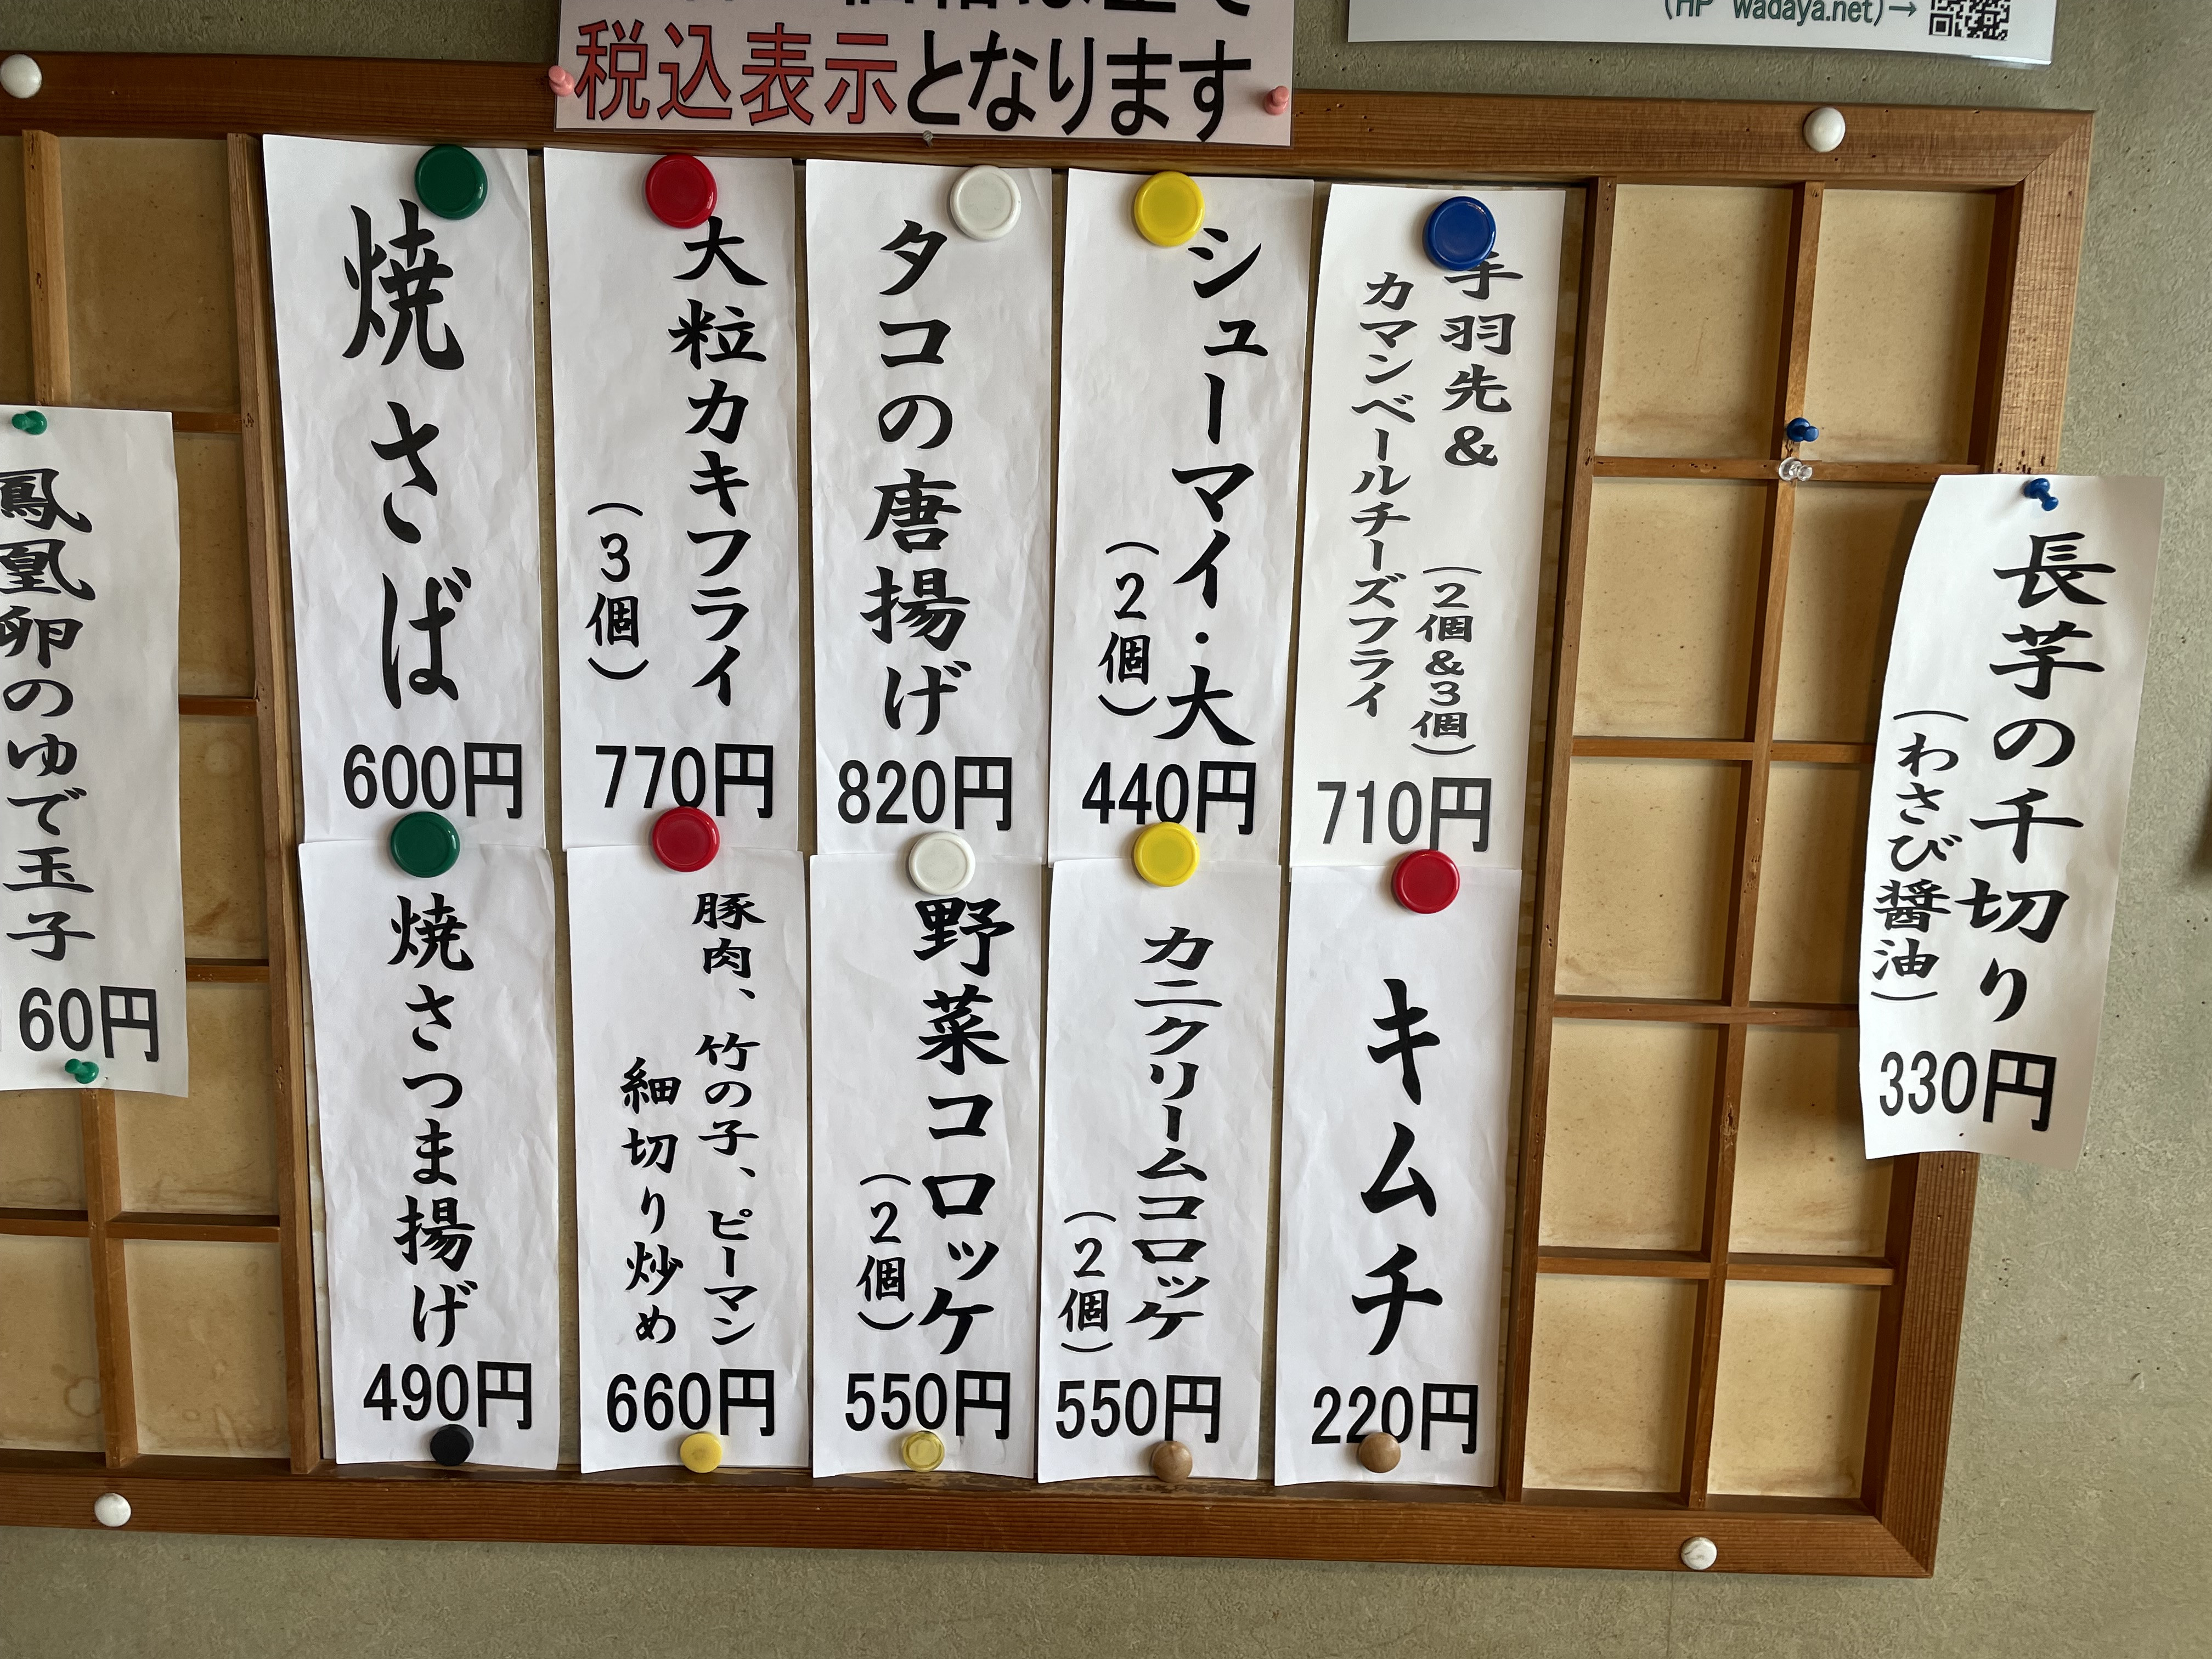 税込表示となります
(HP wadaya.net)→
長芋の千切り
（わさび醤油）
330円
手羽先&
（2個&3個）
カマンベールチーズフライ
710円
シューマイ・大
（2個）
440円
タコの唐揚げ
820円
大粒カキフライ
（3個）
770円
焼さば
600円
キムチ
220円
カニクリームコロッケ
（2個）
550円
野菜コロッケ
（2個）
550円
豚肉、竹の子、ピーマン
細切り炒め
660円
焼さつま揚げ
490円
鳳凰卵のゆで玉子
60円